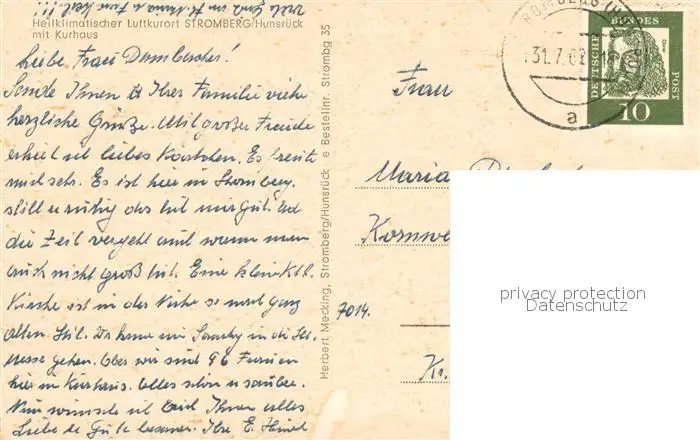 Heilklimatischer Luftkurort STROMBERG/Hunsrück
mit Kurhaus
Liebe Frau
Sende Ihnen & Ihrer Familie viele
herzliche Grüße. Mit großer Freude
erhielt ich liebes Kärtchen. Es freute
mich sehr. Es ist hier in Stromberg
still u ruhig das tut mir gut. Und
die Zeit vergeht auch wenn man
auch nicht groß tut. Eine kleine kl.
Kirche ist in der Nähe so
alten Stil. Da kann ich Sonntag in die
Messe gehen. Aber wir sind 96 Frauen
hier im Kurhaus. Alles schön u sauber.
Nun wünsche ich Ihnen alles
Liebe & Gute Ihre E.
Herbert Mecking, Stromberg/Hunsrück e Bestellnr. Strombg 35
31.7.62
a
DEUTSCHE
BUNDES
POST
10
Frau
Maria
Kornwe
7014.
Kr.
privacy protection
Datenschutz